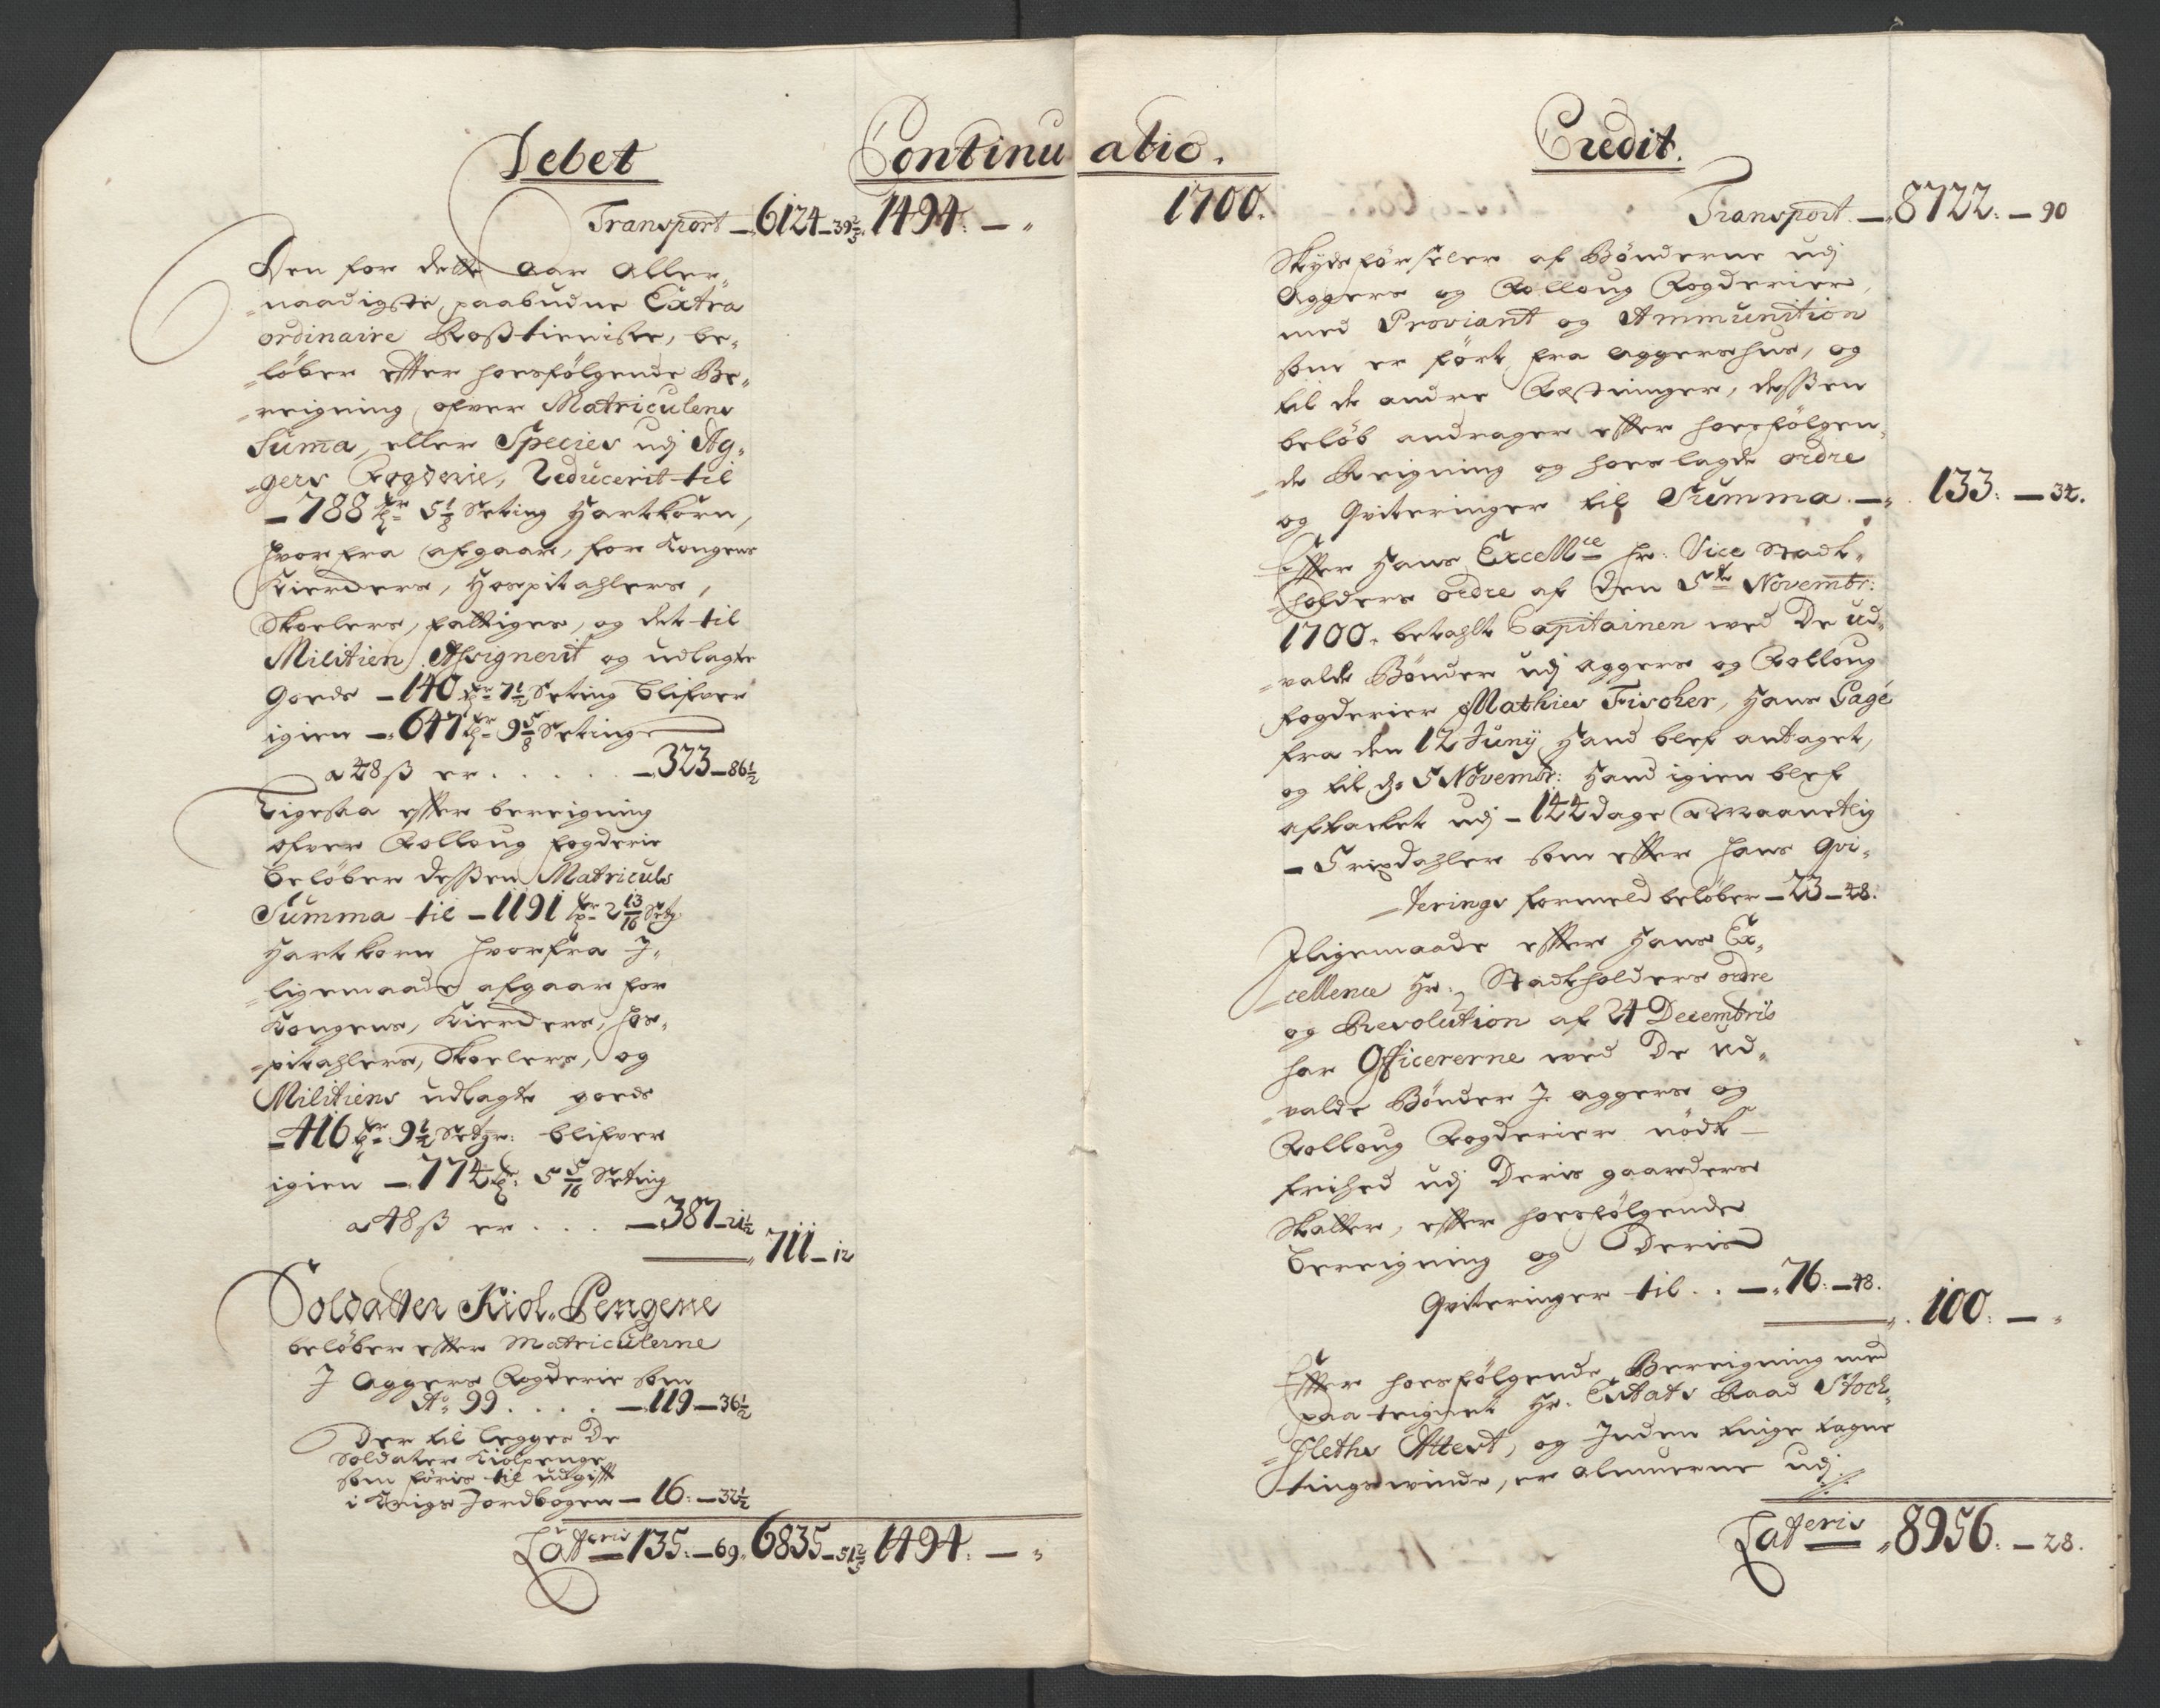 Debet
Continuatio.
1700.
Transport — 6124 — 39 2/3. 1494. — "
Den for dette aar aller„
naadigste paabudne Extra
ordinaire Rosstieniste, be„
løber efter hosfølgende Be„
reigning ofver Matriculens
Suma, eller Species udj Ag„
gers Fogderie, Reducerit til
— 788 5 1/8 Setting Hartkorn,
hvorfra afgaar, for Kongens
Kierckers, Hospitahlers,
Skoelers, fattiges, og det til
Militien Assignerit og udlagte
Goeds — 140 7 1/2 Setting blifver
igien — 647 9 5/8 Setting
a 48 ß er . . . . . — 323 — 86 1/2
Ligesaa efter bereigning
ofver Follaug fogderie
beløber dessen Matriculs
Summa til — 1191 2 13/16 Setg
Hartkorn hvorfra I„
ligemaade afgaar for
Kongens, Kierckers, Hos„
pitahlers, Skoelers, og
Militiens udlagte goeds
— 416 9 1/2 Settgr: blifver
igien — 774 5 5/16 Setting
a 48 ß er . . . — 387 — 21 1/2
711 — 12
Soldatter Kiol„Pengene
beløber efter Matriculerne
I Aggers Fogderie som
Ao 99 . . . . — 119 — 36 1/2
Der til legges De
Soldater Kiolpenge
som føris til udgift
i Kongs Jordbogen — 16: — 32 1/2
Latteris — 135: — 69. 6835 — 51 2/3 1494. — "
Credit.
Transport. — 8722: — 90
Skydsførseler af Bønderne udj
Aggers og Follaug Fogderier,
med Proviant og Ammunition
som er ført fra Aggershus, og
til de andre Festninger, dessen
beløb andrager efter hosfølgen„
de Reigning og hoslagde ordre
og Qviteringer til Summa. — 133: — 34.
Efter Hans Excellce Hr: Vice Stadt„
holders ordre af den 5te Novembr:
1700. betahlt Capitainen med De ud„
valde Bønder udj Aggers og Follaug
fogderier Mathies Fischer, Hans Gage
fra den 12 Junij Hand blef antaget,
og til d: 5 Novembr: Hand igien blef
aftacket udj — 144 dage a Maanetlig
— 5 rixdahler som efter hans Qvi„
terings formeld beløber — 23 — 48.
Iligemaade efter Hans Ex„
cellence Hr: Stadtholders ordre
og Resolution af 24 Decembris
har Officererne med De ud„
valde Bønder I Aggers og
Follaug Fogderier nødt
frihed udj Deris gaarders
Skatter, efter hosfølgende
bereigning og Deris
Qviteringer til . . — 76: — 48.
100: — "
Efter hosfølgende Bereigning med
paa teignet Hr. Estats Raad Stock„
fleths Attest, og Inden
tingsvinde, er almuerne udj
Latteris 8956: — 28.